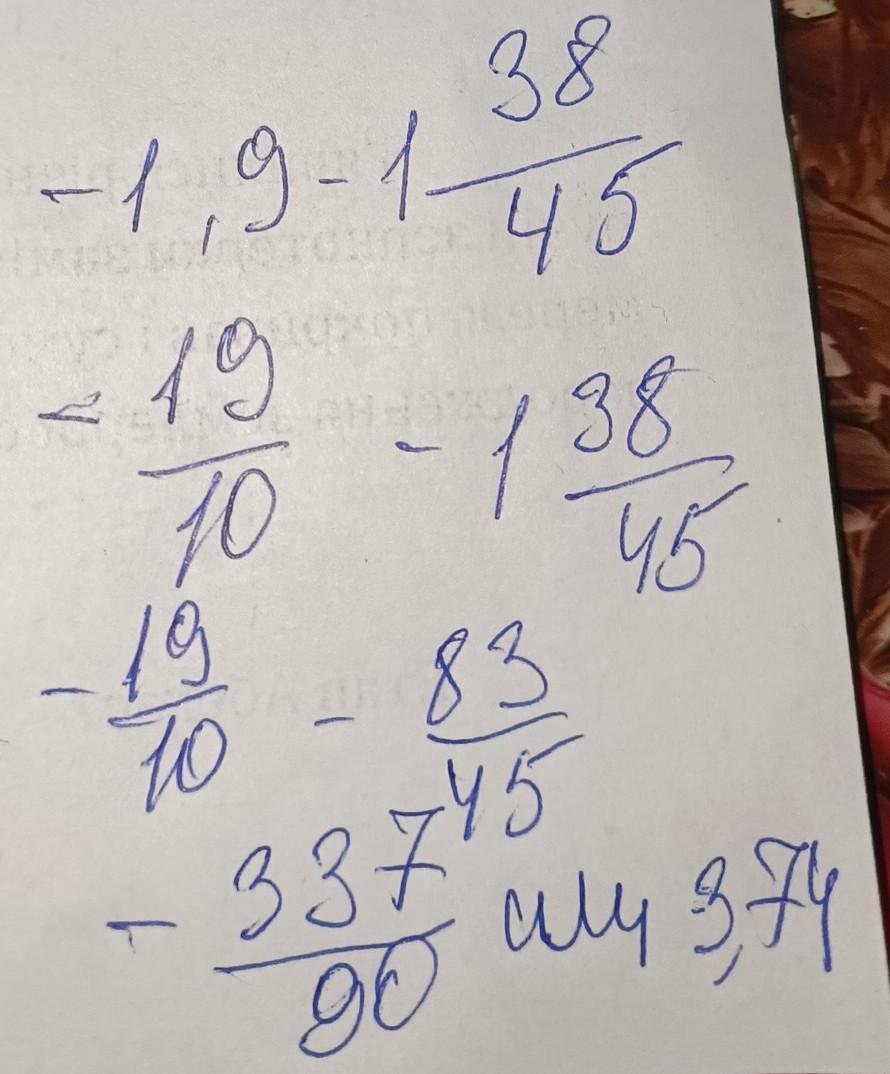 -1,9-1 38/45
-19/10 - 1 38/45
-19/10 - 83/45
-337/90 или 3,74